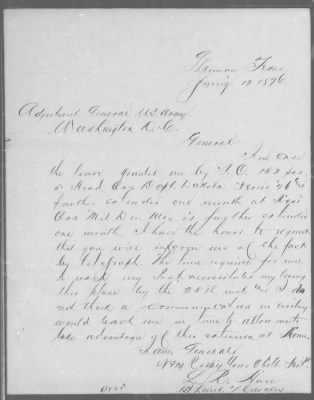 Sherman Texas
Jan'y 12 1876
Adjutant General U.S. Army
Washington D.C.
General
In case
the leave granted me by S.O.
Head Qrs Dept. Dakota
further extended one month at
Mil Div. is further extended
one month, I have the honor to request
that you will inform me of the fact
by telegraph. The time required for me
to reach my Post necessitates my leaving
this place by the 20th inst. I do
not think a communication in writing
would reach me in time to allow me to
take advantage of this extension at Home.
I am General
Very Resp'y Your Obdt Svt.
1st Lieut. 7 Cavalry
over